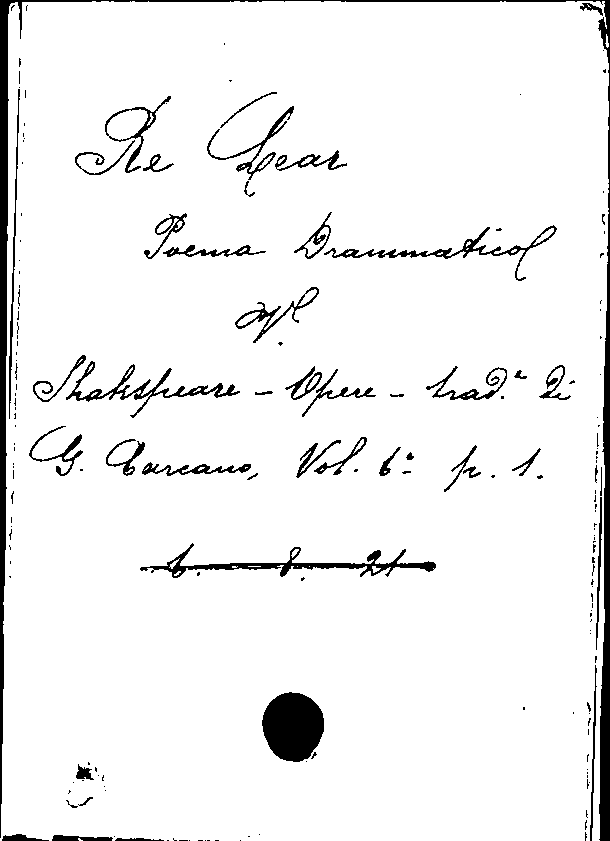 Re Lear
Poema Drammatico
V.
Shakspeare - Opere - trad.e di
G. Carcano, Vol. 6º p. 1.
6. 8. 21